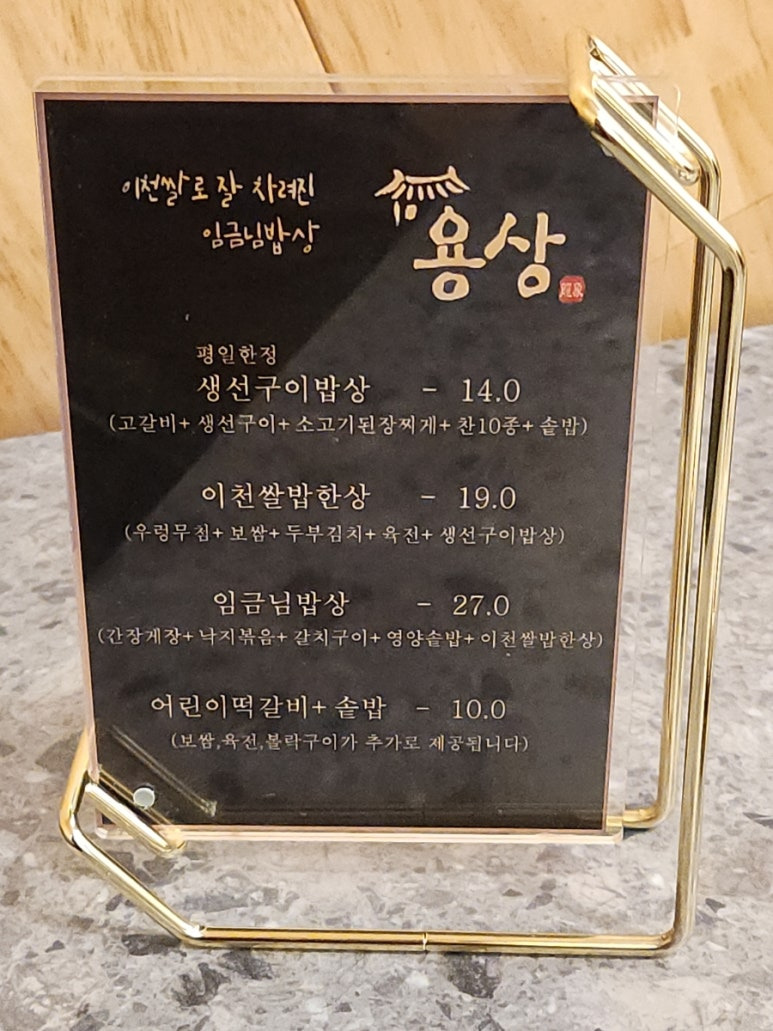 이천쌀로 잘 차려진
임금님밥상
용상
평일한정
생선구이밥상 - 14.0
(고갈비+ 생선구이+ 소고기된장찌게+ 찬10종+ 솥밥)
이천쌀밥한상 - 19.0
(우렁무침+ 보쌈+ 두부김치+ 육전+ 생선구이밥상)
임금님밥상 - 27.0
(간장게장+ 낙지볶음+ 갈치구이+ 영양솥밥+ 이천쌀밥한상)
어린이떡갈비+ 솥밥 - 10.0
(보쌈,육전,볼락구이가 추가로 제공됩니다)